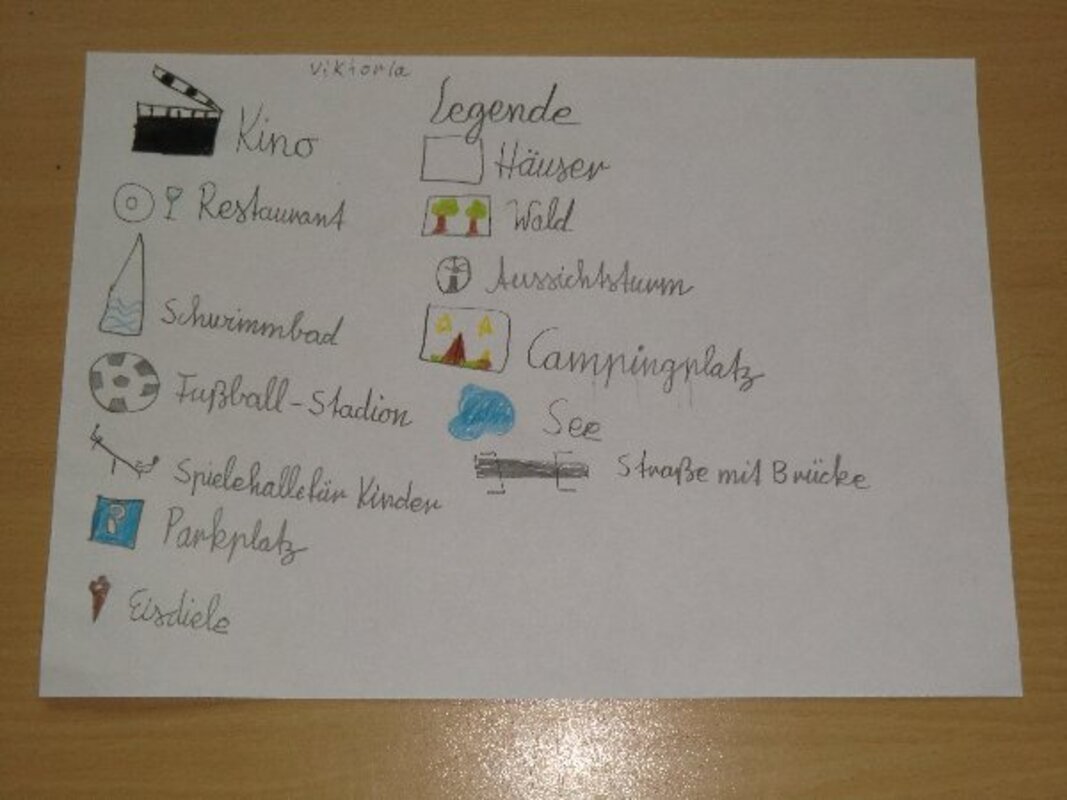 Viktoria
Legende
Kino
Restaurant
Schwimmbad
Fußball-Stadion
Spielehalle für Kinder
P
Parkplatz
Eisdiele
Häuser
Wald
Aussichtsturm
Campingplatz
See
Straße mit Brücke